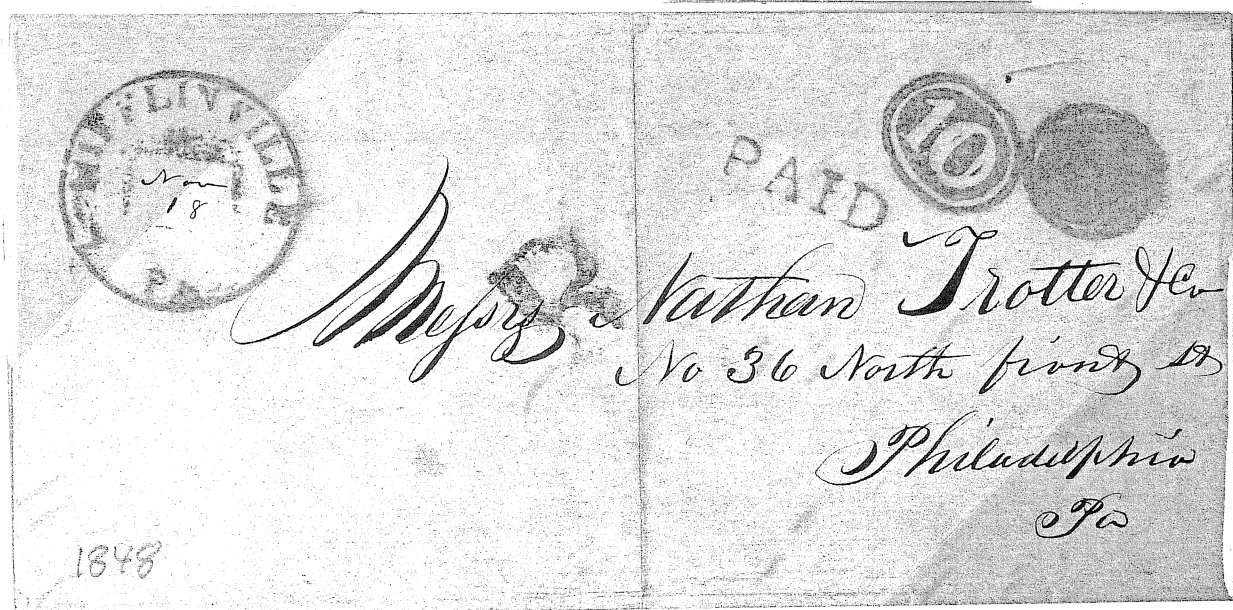 MIFFLINVILLE
Nov
18
Pa
PAID
10
Messrs Nathan Trotter & Co
No 36 North front St
Philadelphia
Pa
1848